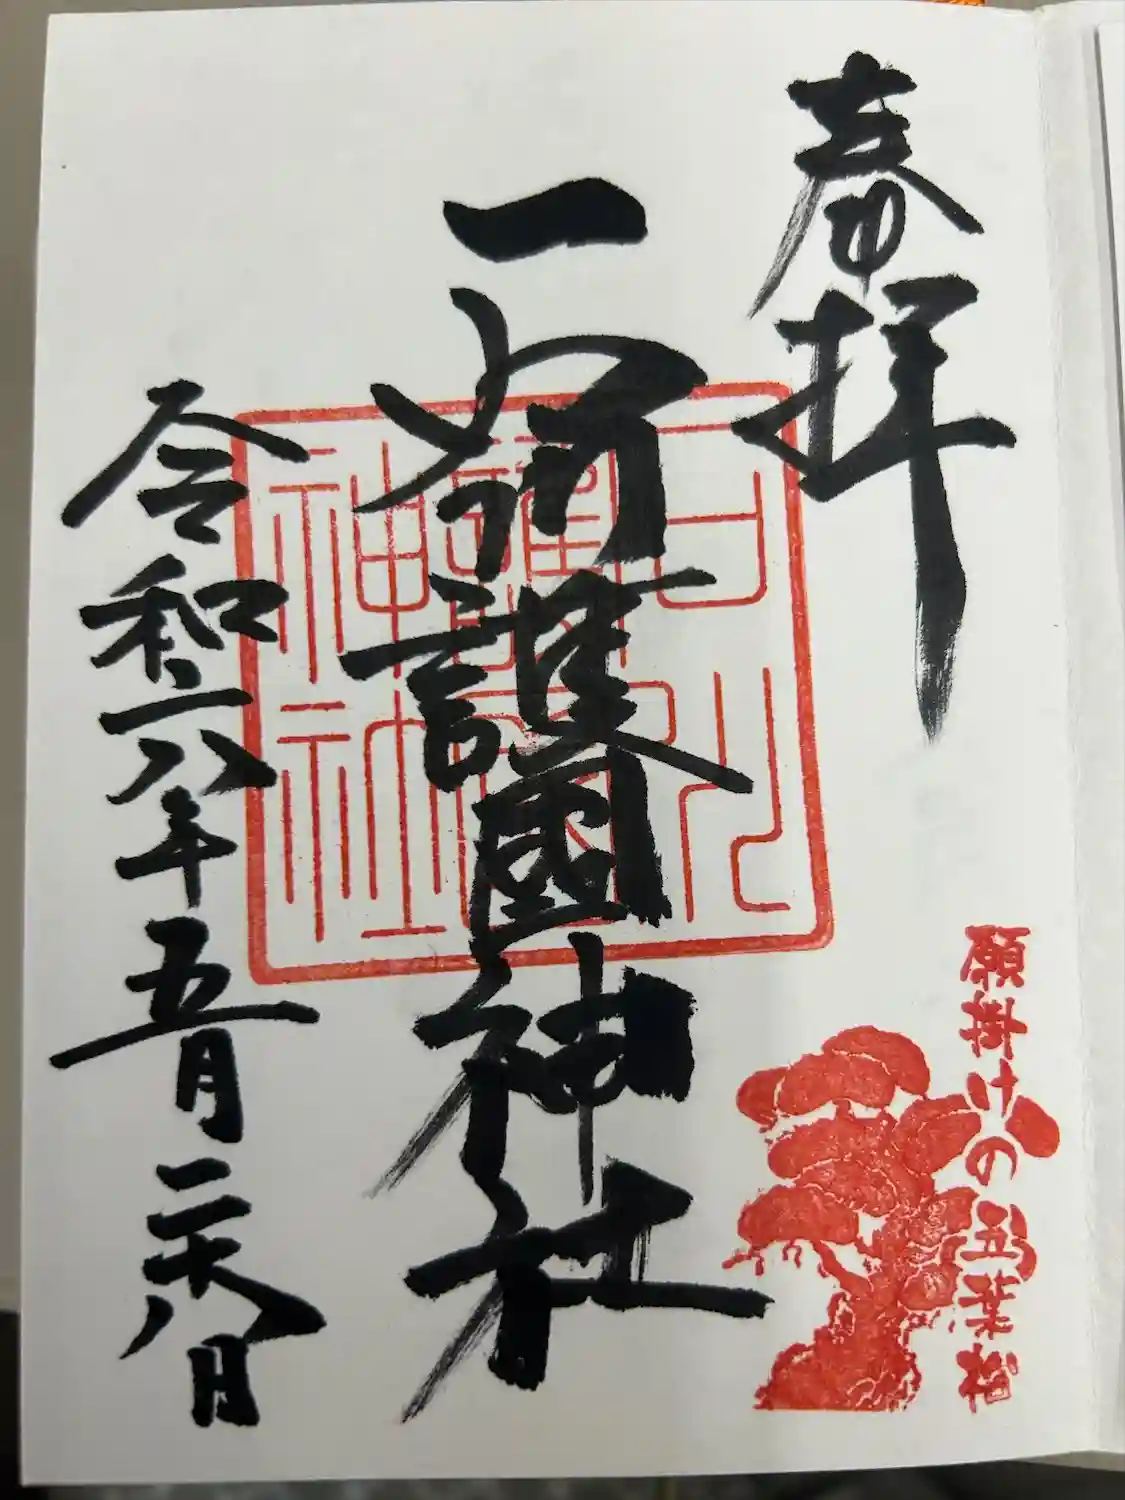 奉拝
護國神社
令和六年五月二十八日
願掛けの五葉松